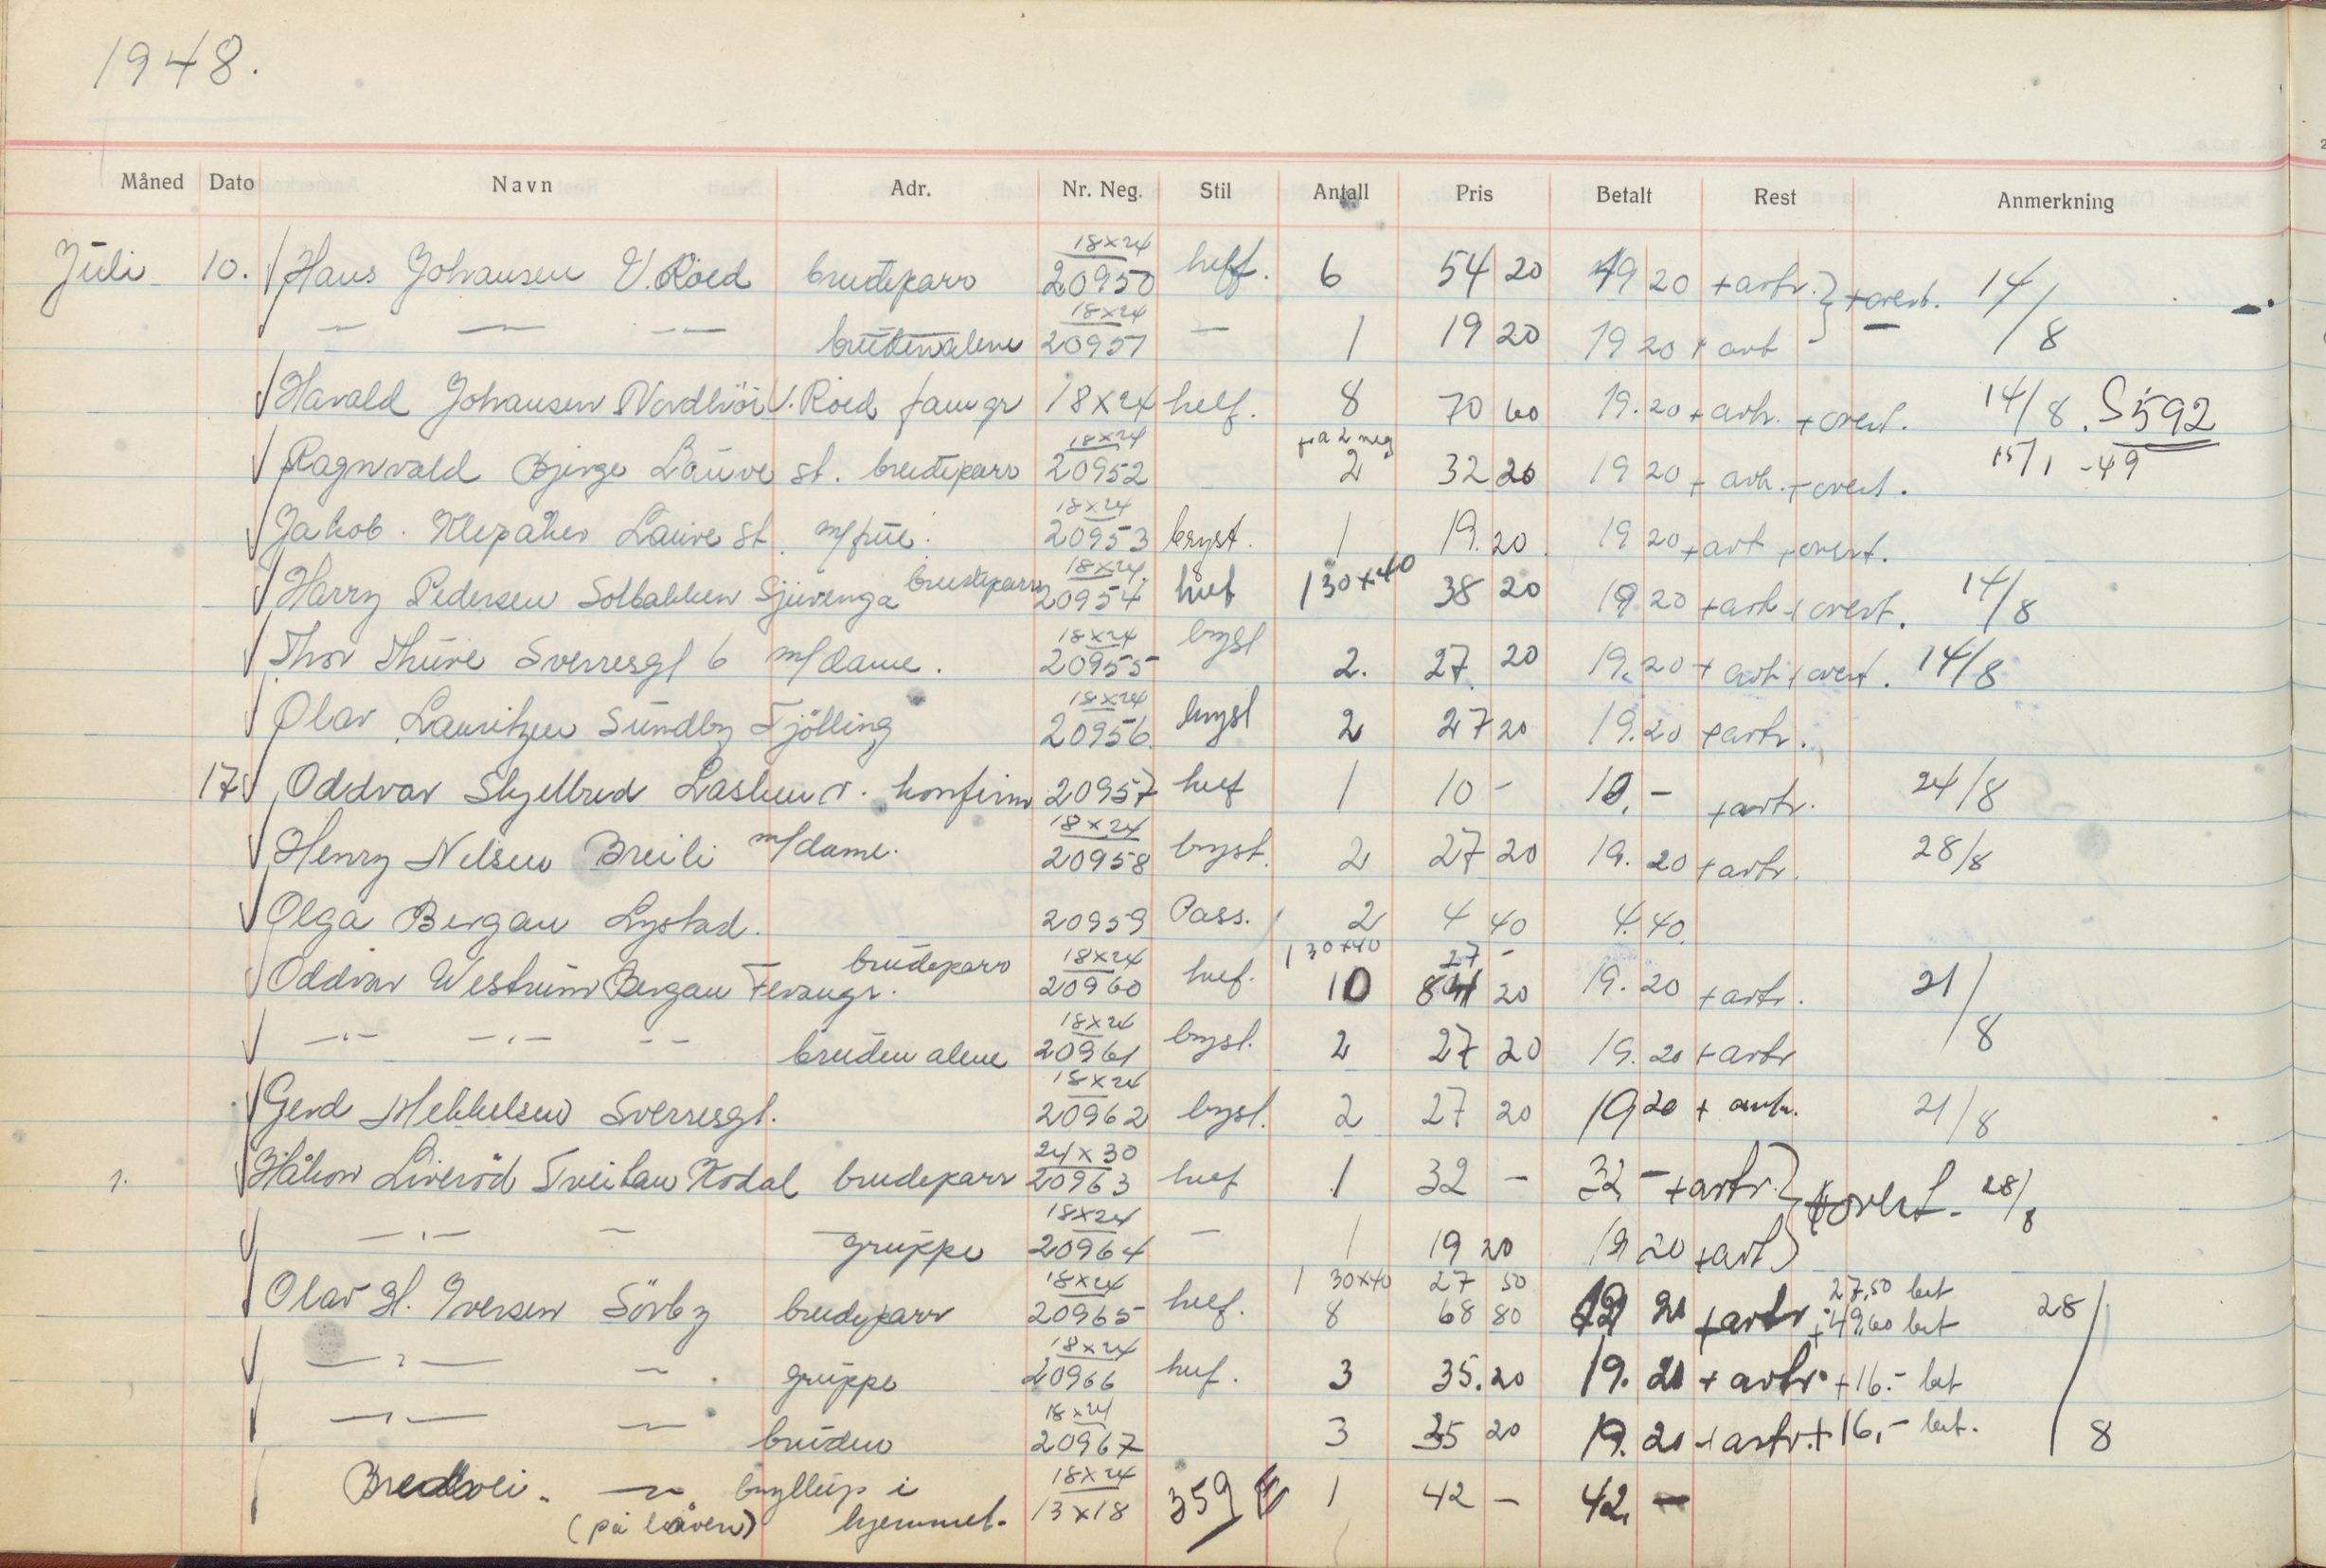 1948.
Måned Dato Navn Adr. Nr. Neg. Stil Antall Pris Betalt Rest Anmerkning
Juli 10. Hans Johansen V. Roed brudeparr 18x24 20950 helf. 6 54 20 19 20 + avtr. + overt. 14/8
— — — — brudenalene 18x24 20951 — 1 19 20 19 20 + avt
Harald Johansen Nordhöi V. Roed fam gr 18x24 helf. 8 70 60 19.20 + avtr. + overt. 14/8. S592
Ragnvald Bjerge Lauve st. brudeparr 18x24 20952 fra 2 neg 2 32 20 19 20 + avtr. + overt. 15/1 -49
Jakob Klepaker Lauve st. m/frue. 18x24 20953 bryst. 1 19.20 19 20 + avt + overt.
Harry Pedersen Solbakken Sjuvenga brudeparr 18x24 20954 helf 1 30x40 38 20 19 20 + avtr + overt. 14/8
Thor Thuve Sverresgt 6 m/dame. 18x24 20955 bryst 2. 27 20 19.20 + avtr + overt. 14/8
Olav Lauritzen Sundby Tjölling 18x24 20956 bryst 2 27 20 19.20 + avtr.
17 Oddvar Skjelbred Lasken v. konfirm 20957 helf 1 10 - 10.- + avtr. 24/8
Henry Nelsen Breili m/dame. 18x24 20958 bryst. 2 27 20 19.20 + avtr. 28/8
Olga Bergan Lystad. 20959 Pass. 2 4 40 4.40.
Oddvar Westrum Bergan Feraugr. brudeparr 18x24 20960 helf. 1 30x40 27 - 10 84 20 19.20 + avtr. 21/8
—"— —"— — — bruden alene 18x24 20961 bryst. 2 27 20 19.20 + avtr
Gerd Mekkelsen Sverresgt. 18x24 20962 bryst. 2 27 20 19 20 + avtr. 21/8
Håkon Liveröd Treitan Kodal brudeparr 24x30 20963 helf 1 32 - 32 - + avtr. + overt. 28/8
—"— — gruppe 18x24 20964 — 1 19 20 19 20 + avt
Olav H. Iversen Sörby brudeparr 18x24 20965 helf. 1 30x40 27 50 8 68 80 19 20 + avtr 27,50 bet + 49,60 bet 28/8
—"— — gruppe 18x24 20966 helf. 3 35.20 19.20 + avtr. + 16.- bet
—"— — bruden 18x24 20967 3 35 20 19.20 + avtr. + 16,- bet.
Bredvei. — bryllup i 18x24 359 1 42 - 42. -
(på låven) hjemmet. 13x18